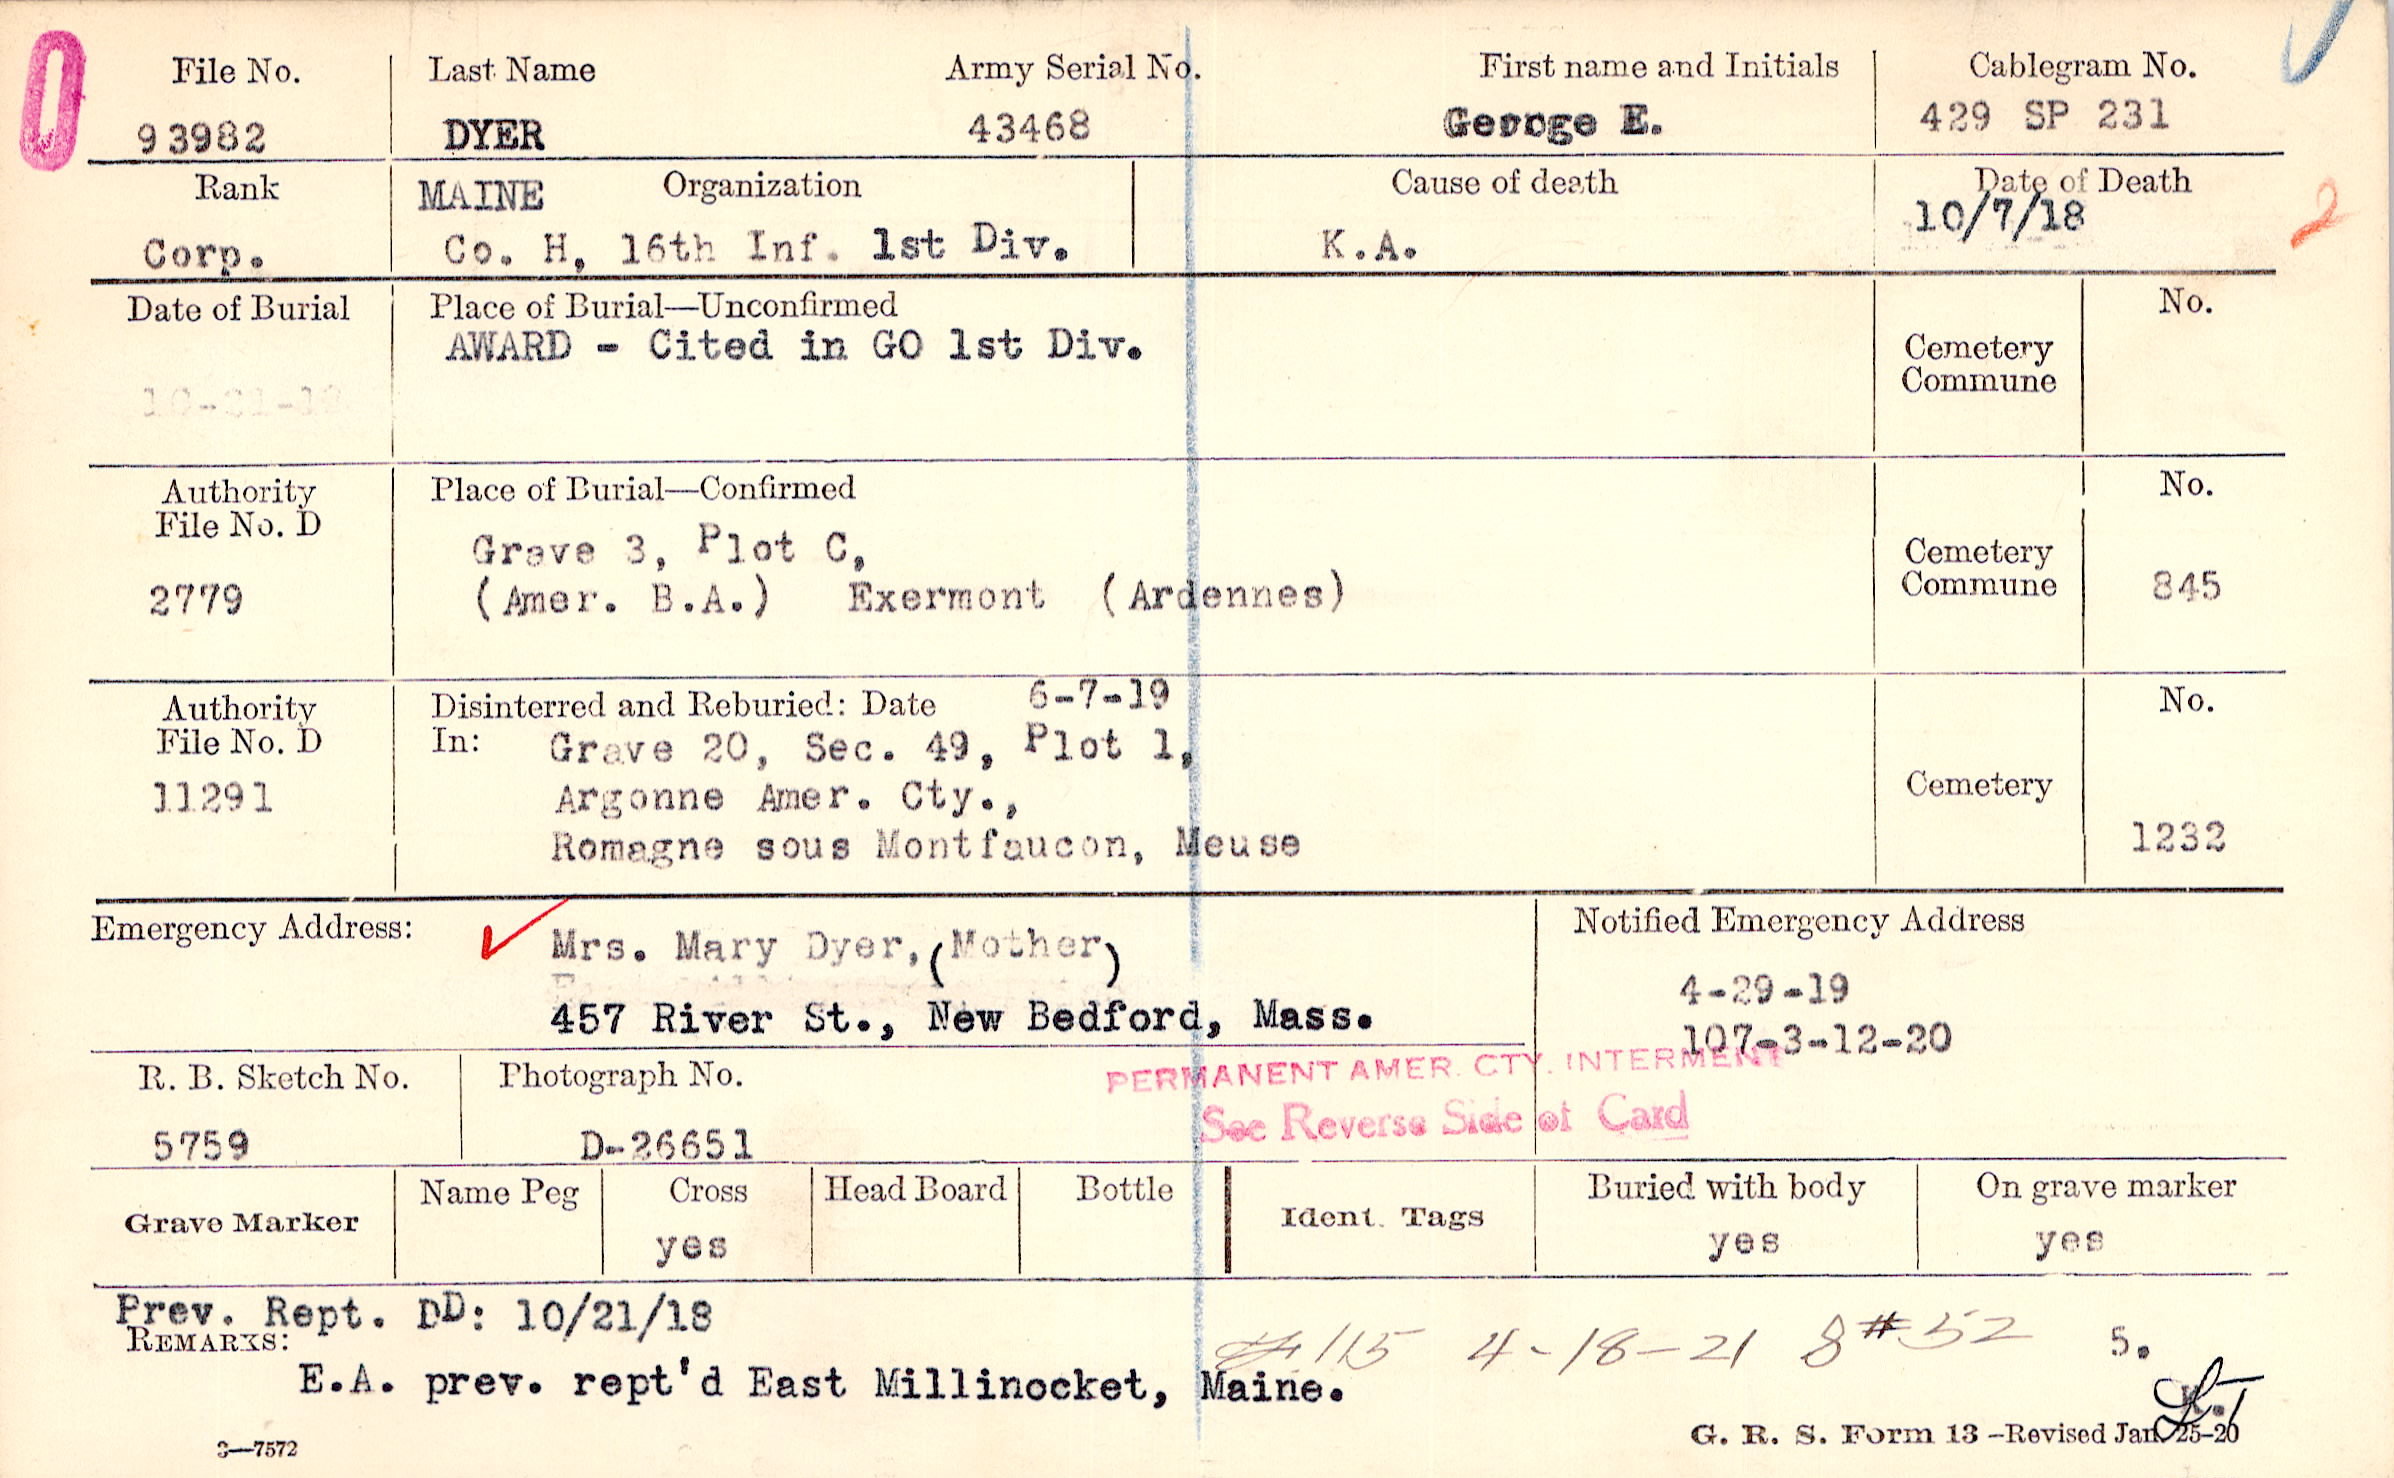 File No. Last Name Army Serial No. First name and Initials Cablegram No.
93982 DYER 43468 George E. 429 SP 231
Rank MAINE Organization Cause of death Date of Death
Corp. Co. H, 16th Inf. 1st Div. K.A. 10/7/18
Date of Burial Place of Burial—Unconfirmed No.
AWARD - Cited in GO 1st Div. Cemetery
Commune
Authority Place of Burial—Confirmed No.
File No. D
Grave 3, Plot C, Cemetery
2779 (Amer. B.A.) Exermont (Ardennes) Commune 845
Authority Disinterred and Reburied: Date 6-7-19 No.
File No. D In: Grave 20, Sec. 49, Plot 1,
11291 Argonne Amer. Cty., Cemetery
Romagne sous Montfaucon, Meuse 1232
Emergency Address: Mrs. Mary Dyer, (Mother) Notified Emergency Address
457 River St., New Bedford, Mass. 4-29-19
107-3-12-20
PERMANENT AMER. CTY. INTERMENT
See Reverse Side of Card
R. B. Sketch No. Photograph No.
5759 D-26651
Grave Marker Name Peg Cross Head Board Bottle Ident. Tags Buried with body On grave marker
yes yes yes
Prev. Rept. DD: 10/21/18
REMARKS: #115 4-18-21 8 #52 5.
E.A. prev. rept'd East Millinocket, Maine.
3—7572 G. R. S. Form 13 -Revised Jan. 25-20